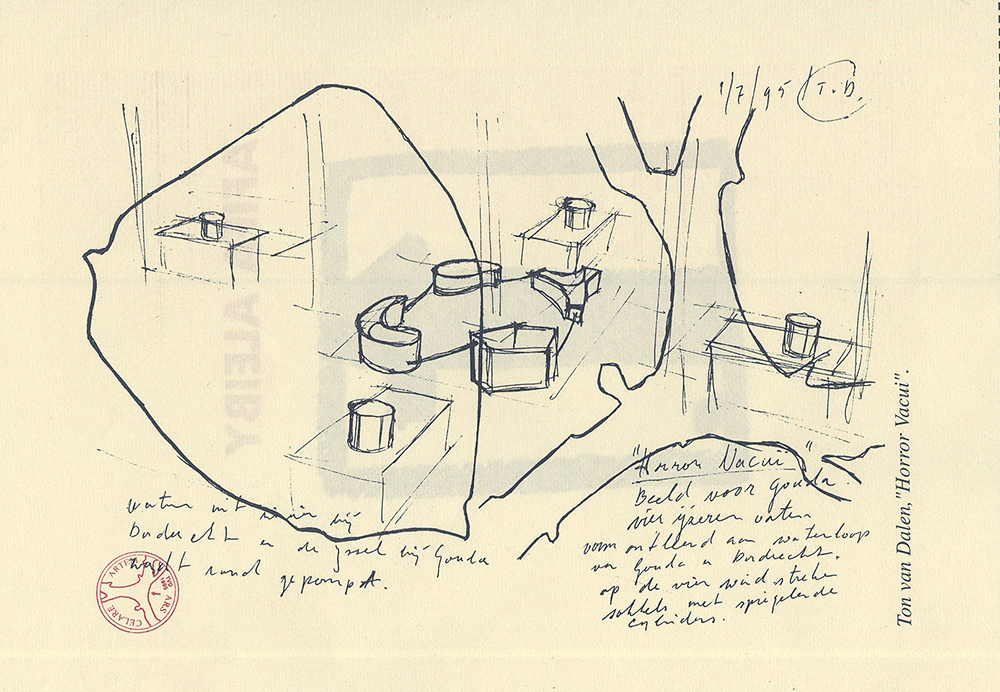 1/7/95 T.D.
"Horror Vacui"
Beeld voor Gouda.
vier ijzeren vaten
vorm ontleend aan waterloop
van Gouda en Dordrecht.
op de vier windstreken
sokkels met spiegelende
cylinders.
water uit rivier bij
Dordrecht en de Yssel bij Gouda
wordt rond gepompt.
Ton van Dalen,"Horror Vacui".
ARS
CELARE
ARTEM